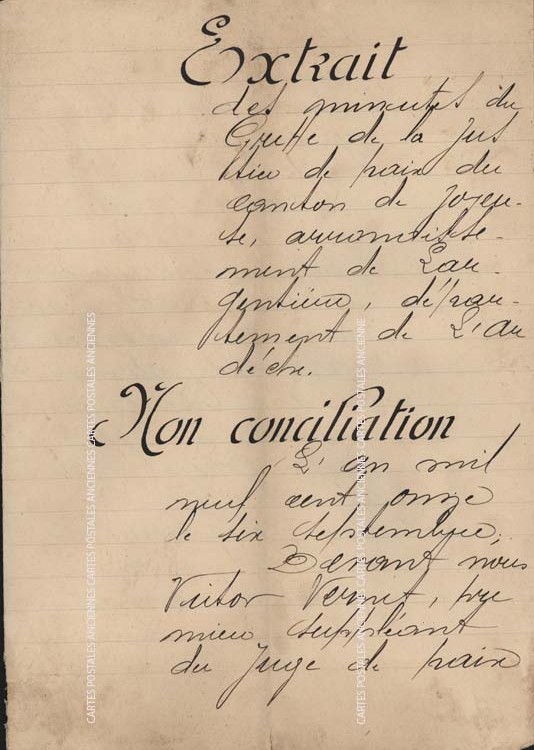 Extrait
des minutes du
Greffe de la Jus
tice de paix du
canton de Joyeu-
se, arrondisse-
ment de Lar-
gentière, dépar-
tement de L'Ar
dèche.
Non conciliation
L'an mil
neuf cent onze
le six septembre,
Devant nous
Victor Vernet, pre
mier suppléant
du Juge de paix
CARTES POSTALES ANCIENNES CARTES POSTALES ANCIENNES CARTES POSTALES ANCIENNES
CARTES POSTALES ANCIENNES CARTES POSTALES ANCIENNES CARTES POSTALES ANCIENNES